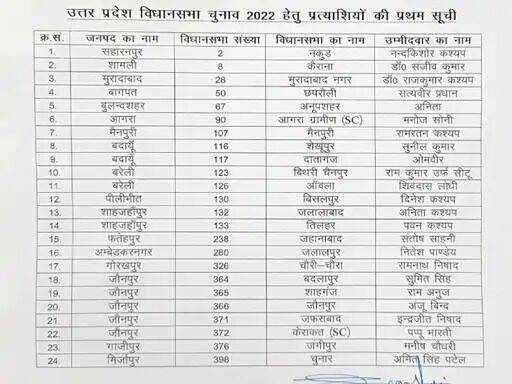 उत्तर प्रदेश विधानसभा चुनाव 2022 हेतु प्रत्याशियों की प्रथम सूची
क्र.सं. जनपद का नाम विधानसभा संख्या विधानसभा का नाम उम्मीदवार का नाम
1. सहारनपुर 2 नकुड नन्दकिशोर कश्यप
2. शामली 8 कैराना डॉ0 संजीव कुमार
3. मुरादाबाद 28 मुरादाबाद नगर डॉ0 राजकुमार कश्यप
4. बागपत 50 छपरौली सत्यवीर प्रधान
5. बुलन्दशहर 67 अनूपशहर अनिता
6. आगरा 90 आगरा ग्रामीण (SC) मनोज सोनी
7. मैनपुरी 107 मैनपुरी रामरतन कश्यप
8. बदायूँ 116 शेखूपुर सुनील कुमार
9. बदायूँ 117 दातागंज ओमवीर
10. बरेली 123 बिथरी चैनपुर राम कुमार उर्फ सीटू
11. बरेली 126 आँवला शिवदास लोधी
12. पीलीभीत 130 बिसलपुर दिनेश कश्यप
13. शाहजहाँपुर 132 जलालाबाद अनिता कश्यप
14. शाहजहाँपुर 133 तिलहर पवन कश्यप
15. फतेहपुर 238 जहानाबाद संतोष साहनी
16. अम्बेडकरनगर 280 जलालपुर नितेश पाण्डेय
17. गोरखपुर 326 चौरी-चौरा रामनाथ निषाद
18. जौनपुर 364 बदलापुर सुमित सिंह
19. जौनपुर 365 शाहगंज राम अनुज
20. जौनपुर 366 जौनपुर अंजू बिन्द
21. जौनपुर 371 जफराबाद इन्द्रजीत निषाद
22. जौनपुर 372 केराकत (SC) पप्पू भारती
23. गाजीपुर 376 जंगीपुर मनीष चौधरी
24. मिर्जापुर 398 चुनार अमित सिंह पटेल